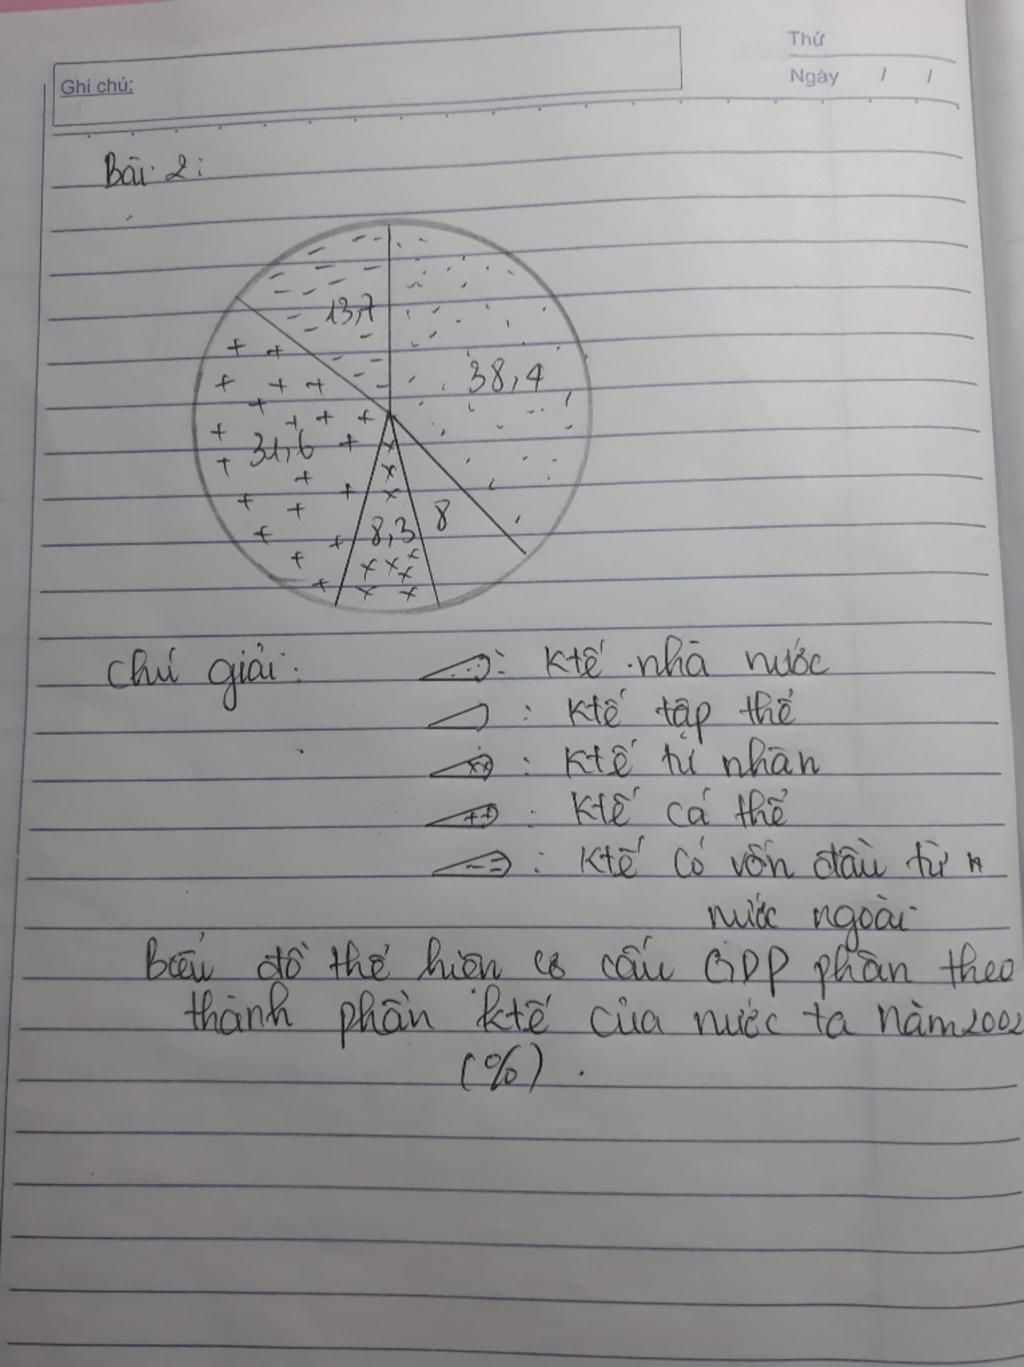 Thứ
Ghi chú:
Ngày / /
Bài 2:
13,7
38,4
31,6
8,3
8
Chú giải: : Ktế nhà nước
: Ktế tập thể
: Ktế tư nhân
: Ktế cá thể
: Ktế có vốn đầu tư
nước ngoài
Biểu đồ thể hiện cơ cấu GDP phân theo
thành phần ktế của nước ta năm 2002
(%).